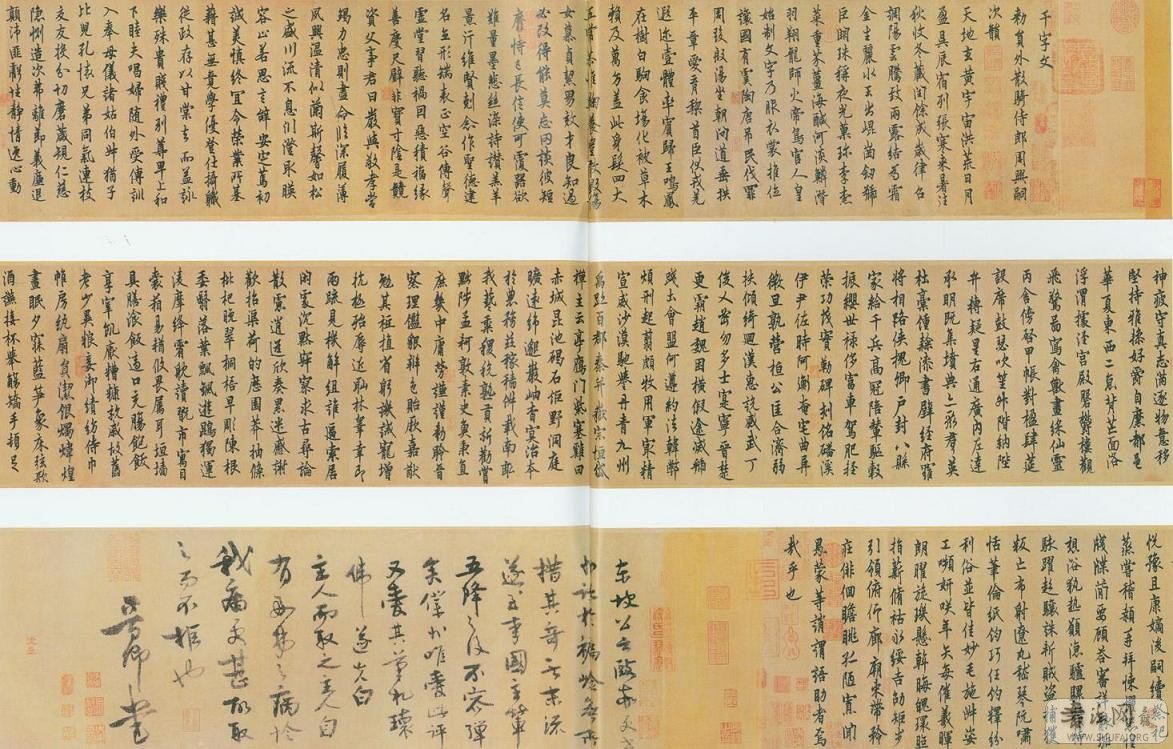 千字文
勑員外散騎侍郎周興嗣
次韻
天地玄黃宇宙洪荒日月
盈昃辰宿列張寒来暑往
秋收冬藏閏餘成歲律呂
調陽雲騰致雨露結為霜
金生麗水玉出崐崗劔號
巨闕珠稱夜光菓珎李柰
菜重芥薑海鹹河淡鱗潛
羽翔龍師火帝鳥官人皇
始制文字乃服衣裳推位
讓國有虞陶唐弔民伐罪
周發殷湯坐朝問道垂拱
平章愛育黎首臣伏戎羌
遐迩壹體率賔歸王鳴鳳
在樹白駒食場化被草木
賴及萬方蓋此身髮四大
五常恭惟鞠養豈敢毀傷
女慕貞絜男效才良知過
必改得能莫忘罔談彼短
靡恃己長信使可覆器欲
難量墨悲絲染詩讃羔羊
景行維賢剋念作聖德建
名立形端表正空谷傳聲
虛堂習聽禍因惡積福緣
善慶尺璧非寶寸陰是競
資父事君曰嚴與敬孝當
竭力忠則盡命臨深履薄
夙興溫凊似蘭斯馨如松
之盛川流不息淵澄取暎
容止若思言辭安定篤初
誠美慎終宜令榮業所基
藉甚無竟學優登仕攝職
從政存以甘棠去而益詠
樂殊貴賤禮別尊卑上和
下睦夫唱婦隨外受傅訓
入奉母儀諸姑伯叔猶子
比兒孔懷兄弟同氣連枝
交友投分切磨箴規仁慈
隱惻造次弗離節義廉退
顛沛匪虧性靜情逸心動
神疲守真志滿逐物意移
堅持雅操好爵自縻都邑
華夏東西二京背芒面洛
浮渭據涇宮殿磐欎樓觀
飛驚啚寫禽獸畫綵仙靈
丙舍傍啓甲帳對楹肆筵
設席鼓瑟吹笙升階納陛
弁轉疑星右通廣內左達
承明既集墳典亦聚群英
杜稾鍾隸漆書壁經府羅
將相路俠槐卿戶封八縣
家給千兵高冠陪輦驅轂
振纓世禄侈富車駕肥輕
榮功茂實勒碑刻銘磻溪
伊尹佐時阿衡奄宅曲阜
微旦孰營桓公匡合濟弱
扶傾綺迴漢惠說感武丁
俊乂密勿多士寔寧晉楚
更霸趙魏困橫假途滅虢
踐土會盟何遵約法韓弊
煩刑起翦頗牧用軍寂精
宣威沙漠馳譽丹青九州
禹跡百郡秦并嶽宗恒岱
禪主云亭鴈門紫塞雞田
赤城昆池碣石鉅野洞庭
曠遠緜邈巖岫杳冥治本
於農務茲稼穡俶載南畝
我藝黍稷稅熟貢新勸賞
黜陟孟軻敦素史魚秉直
庶幾中庸勞謙謹勑聆音
察理鑑貌辯色貽厥嘉猷
勉其祗植省躬譏誡寵增
抗極殆辱近耻林臯幸即
兩疏見機解組誰逼索居
閑處沉默寂寥求古尋論
散慮逍遥欣奏累遣慼謝
歡招渠荷的歷園莽抽條
枇杷晚翠梧桐早彫陳根
委翳落葉飄颻遊鵾獨運
凌摩絳霄耽讀翫市寓目
囊箱易輶攸畏屬耳垣墻
具膳飡飯適口充膓飽飫
享宰飢厭糟糠親戚故舊
老少異糧妾御績紡侍巾
帷房紈扇圓潔銀燭煒煌
晝眠夕寐藍笋象床弦歌
酒讌接杯舉觴矯手頓足
悅豫且康嫡後嗣續祭祀
蒸嘗稽顙再拜悚懼恐惶
牋牒簡要顧荅審詳骸垢
想浴執熱願凉驢騾犢特
駭躍超驤誅斬賊盜捕獲
叛亡布射遼丸嵇琴阮嘯
恬筆倫紙鈞巧任釣釋紛
利俗並皆佳妙毛施淑姿
工嚬妍咲年矢每催羲暉
朗曜旋璣懸斡晦魄環照
指薪脩祜永綏吉劭矩步
引領俯仰廊廟束帶矜
莊徘徊瞻眺孤陋寡聞
愚蒙等誚謂語助者焉
哉乎也
東坡公云
措其
李國主
五降之後不容彈
矣僕外唯
又其筆札
佛遂
主人而取之主人自
有之病於
我甚
之而不拒也
書
书法网
WWW.SHUFAJI.ORG